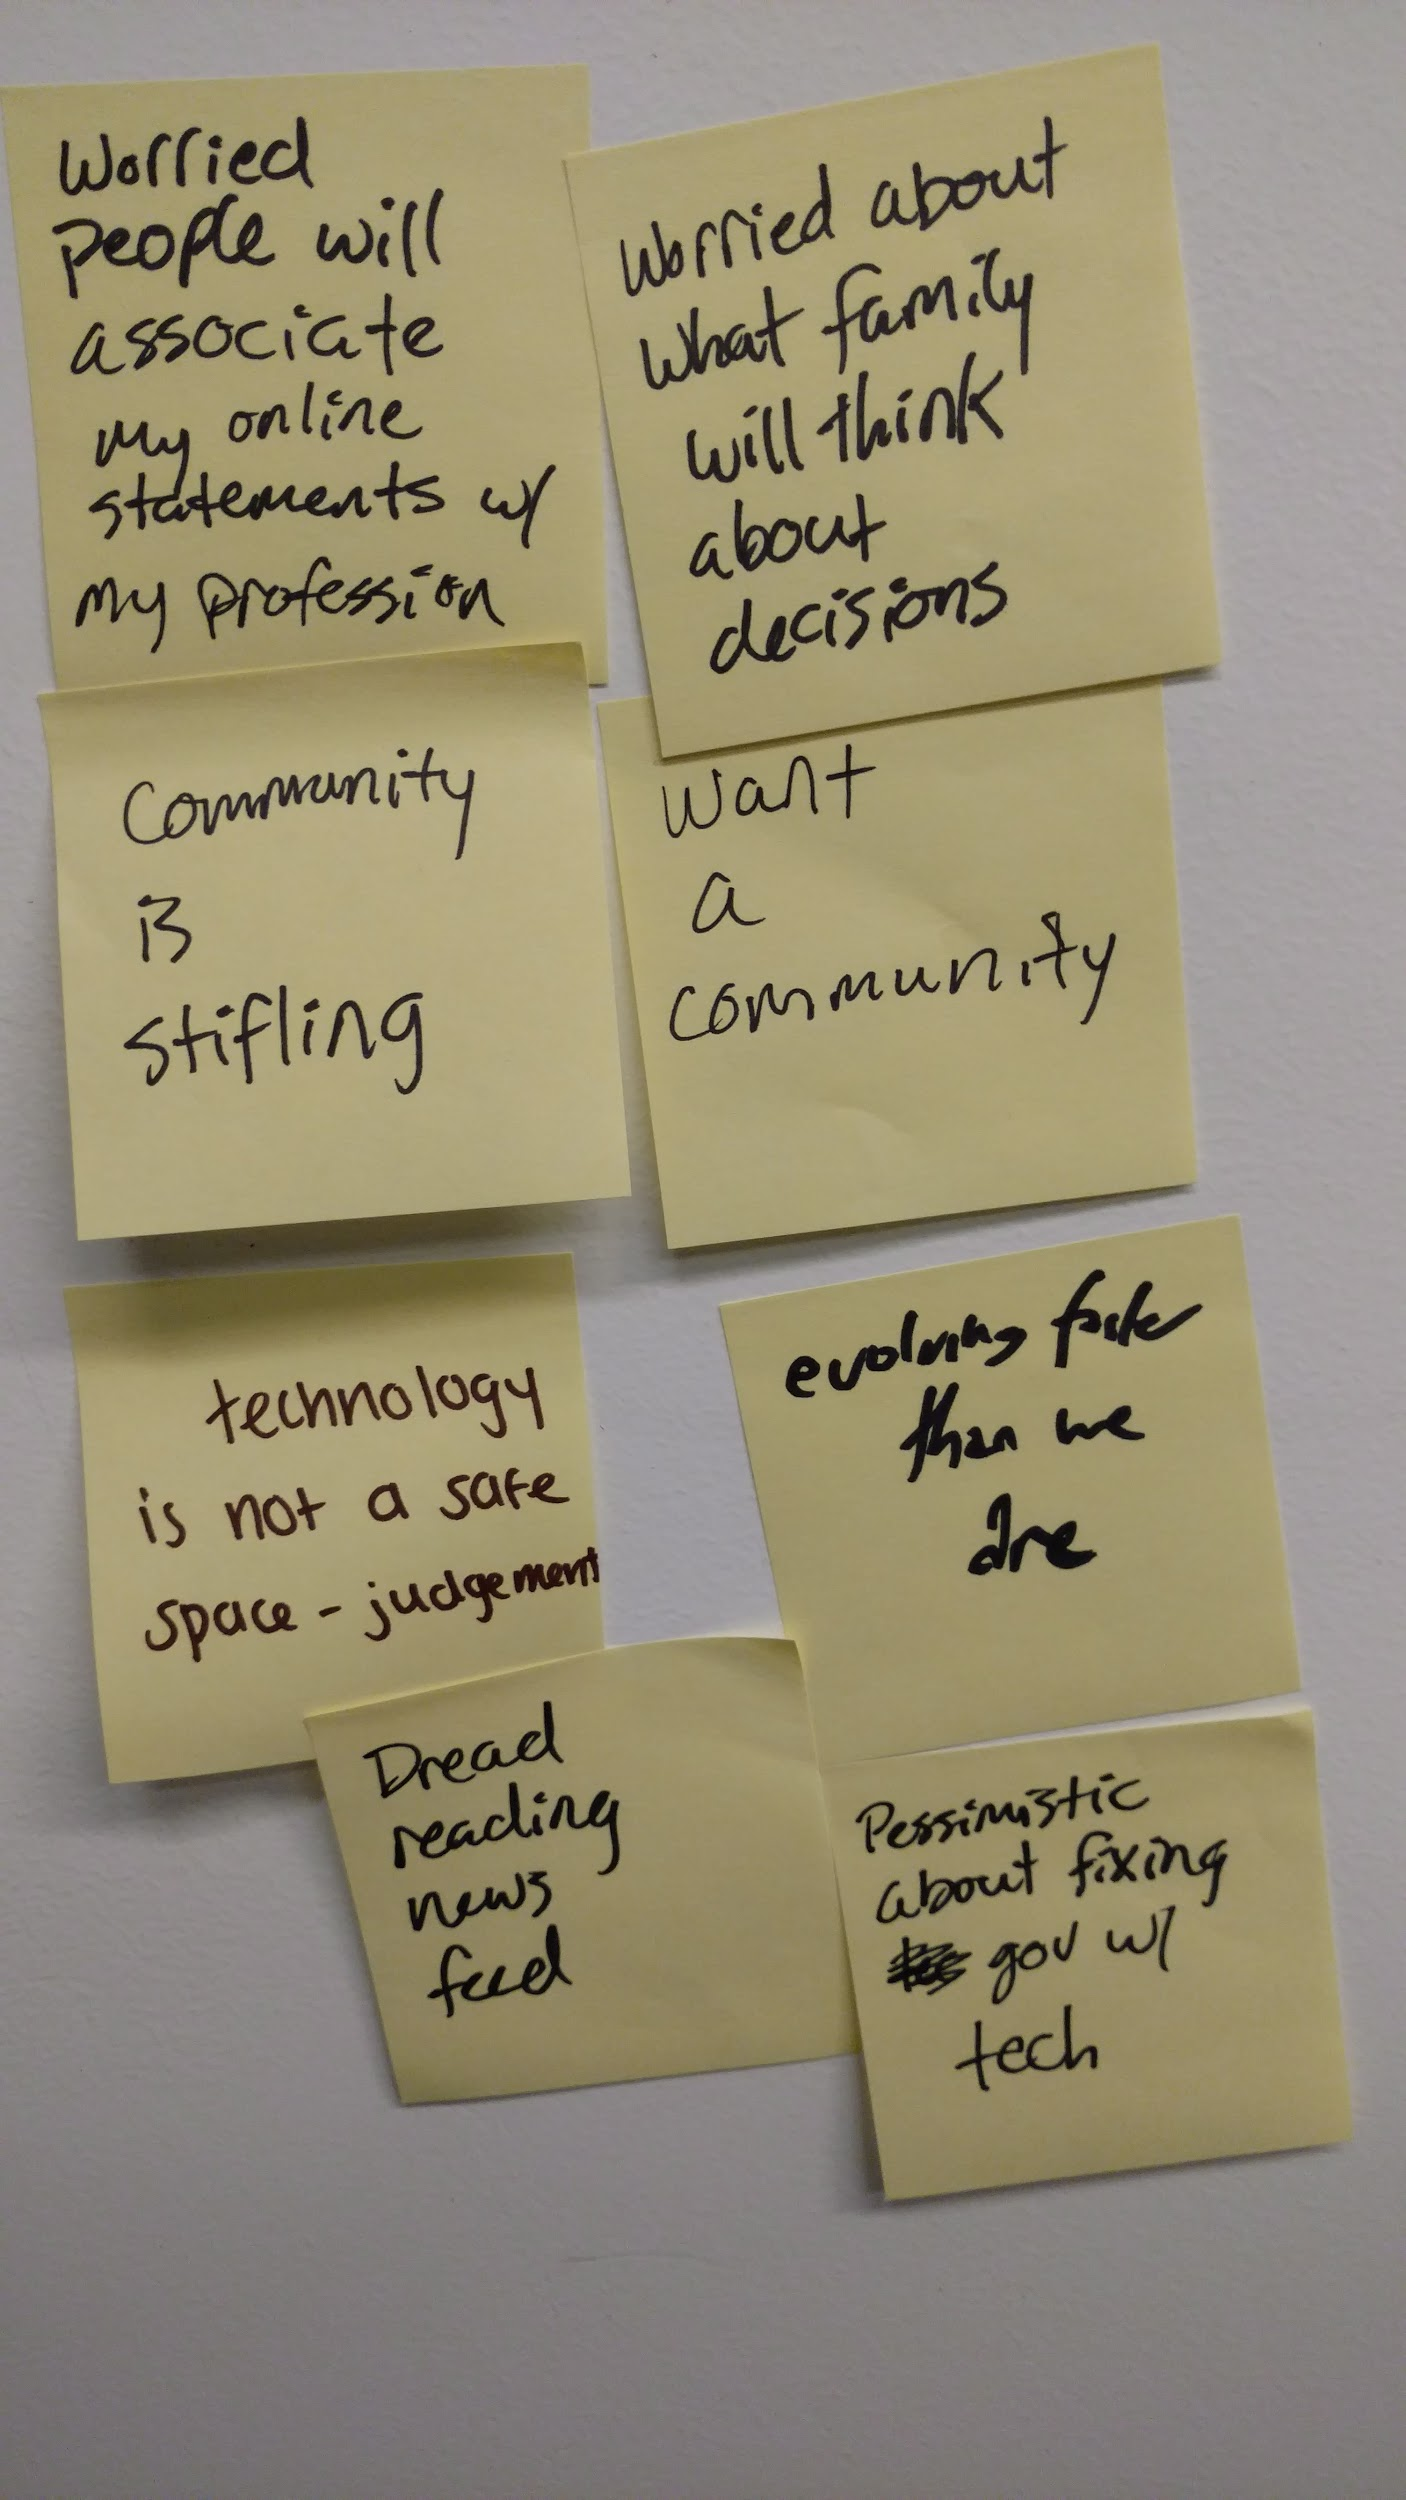 Worried
people will
associate
my online
statements w/
my profession
Worried about
what family
will think
about
decisions
Community
is
stifling
Want
a
community
technology
is not a safe
space - judgement
evolving faster
than we
are
Dread
reading
news
feed
Pessimistic
about fixing
gov w/
tech